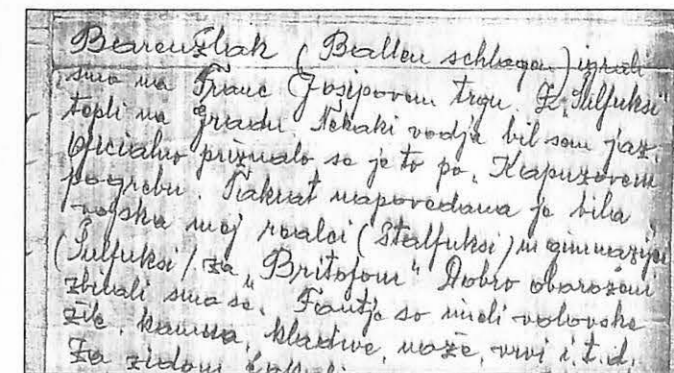 Biarenžlak (Ballen schlagen) igrali
smo na Franc Josipovem trgu. Z „Šulfuksi"
topli na gradu. Nekaki vodja bil sem jaz.
Oficialno priznalo se je to po „Kapuzovem
pogrebu. Takrat napovedana je bila
vojska mej realci (Stalfuksi) in gimnazijci
(Šulfuksi) za „Britofom" Dobro oboroženi
zbirali smo se. Fantje so imeli volovske
žile, kamna, kladive, nože, vrvi i.t.d.
Za zidom